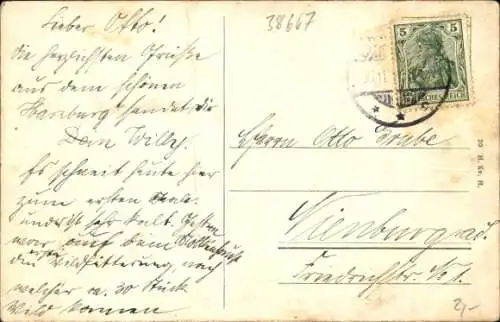 Lieber Otto!
die herzlichsten Grüße
aus dem schönen
Harzburg sendet dir
Dein Willy.
Es schneit heute hier
zum ersten Male
und ist sehr kalt. Gestern
war auf dem
die erste Wildfütterung, nach
welcher ca. 30 Stück
Wild kamen
38667
5 5
DEUTSCHES REICH
Herrn Otto Grube
Nienburg a. d.
Friedrichstr.
20 H. Kr. H.
2,-